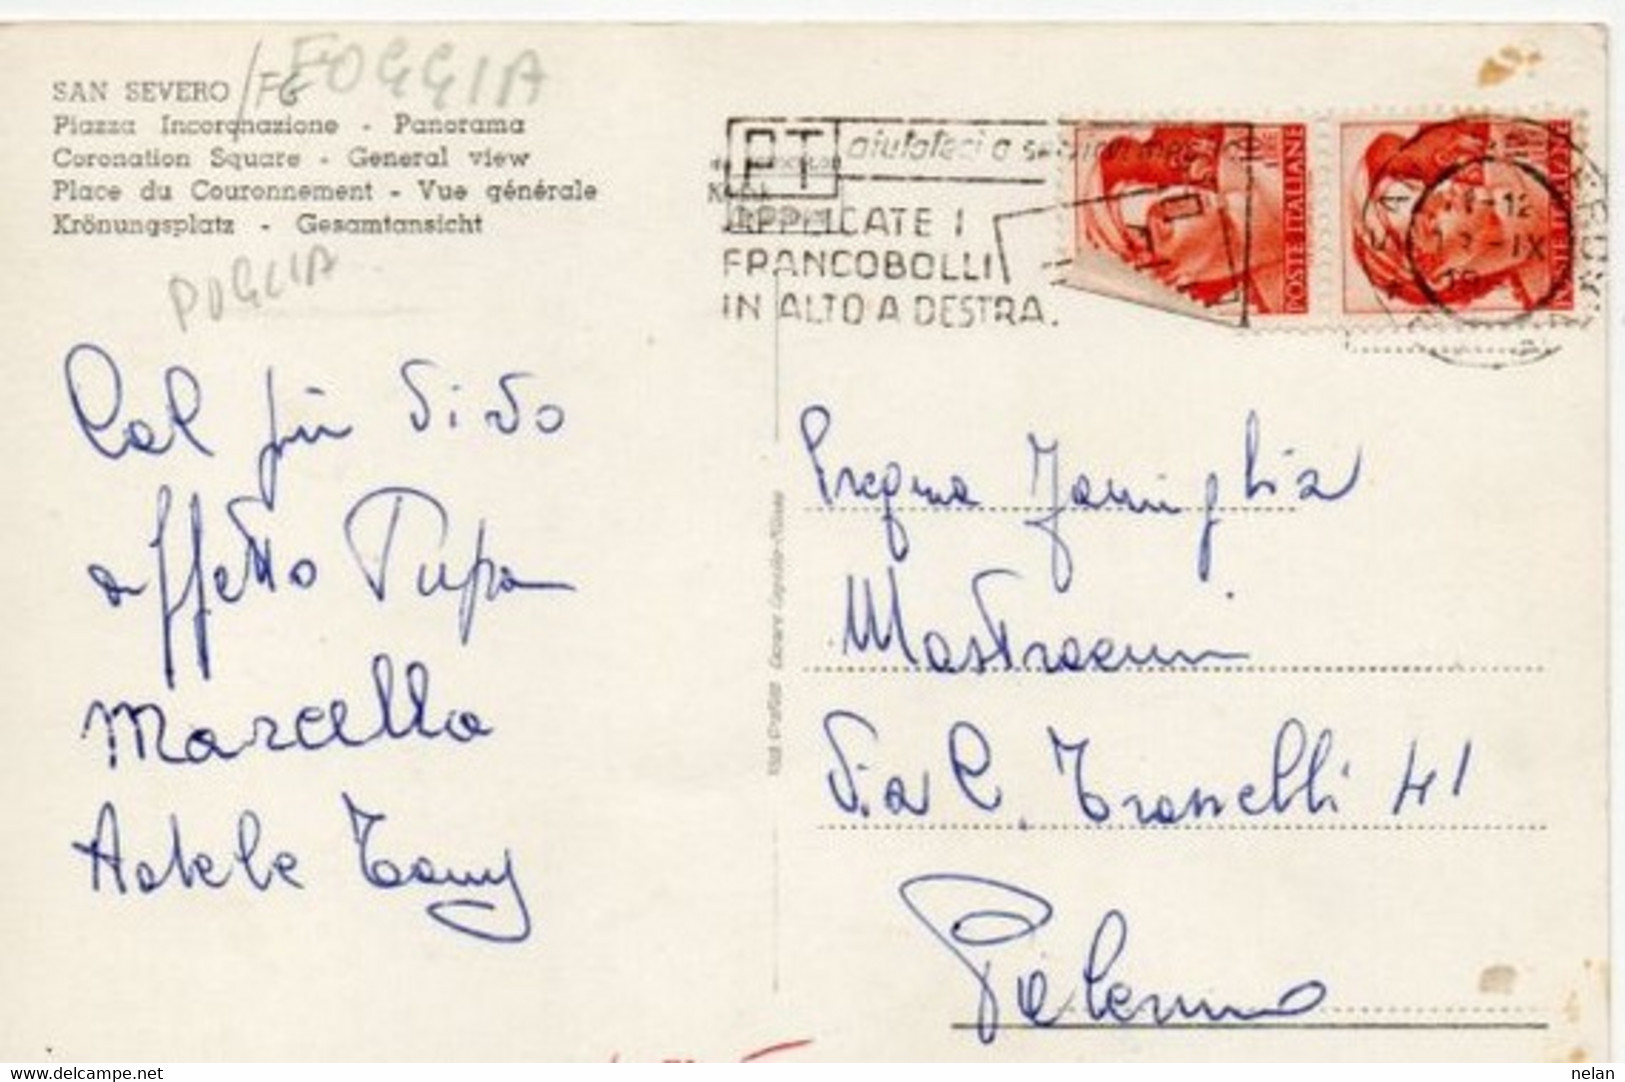 SAN SEVERO /FG FOGGIA
Piazza Incoronazione - Panorama
Coronation Square - General view
Place du Couronnement - Vue générale
Krönungsplatz - Gesamtansicht
PUGLIA
PT aiutateci a
APPLICATE I
FRANCOBOLLI
IN ALTO A DESTRA.
POSTE ITALIANE
POSTE ITALIANE
Col più vivo
affetto Pupa
Marcella
Adele Tony
Pregma Famiglia
Mastroeni
Via C. Trasselli 41
Palermo
www.delcampe.net
nelan